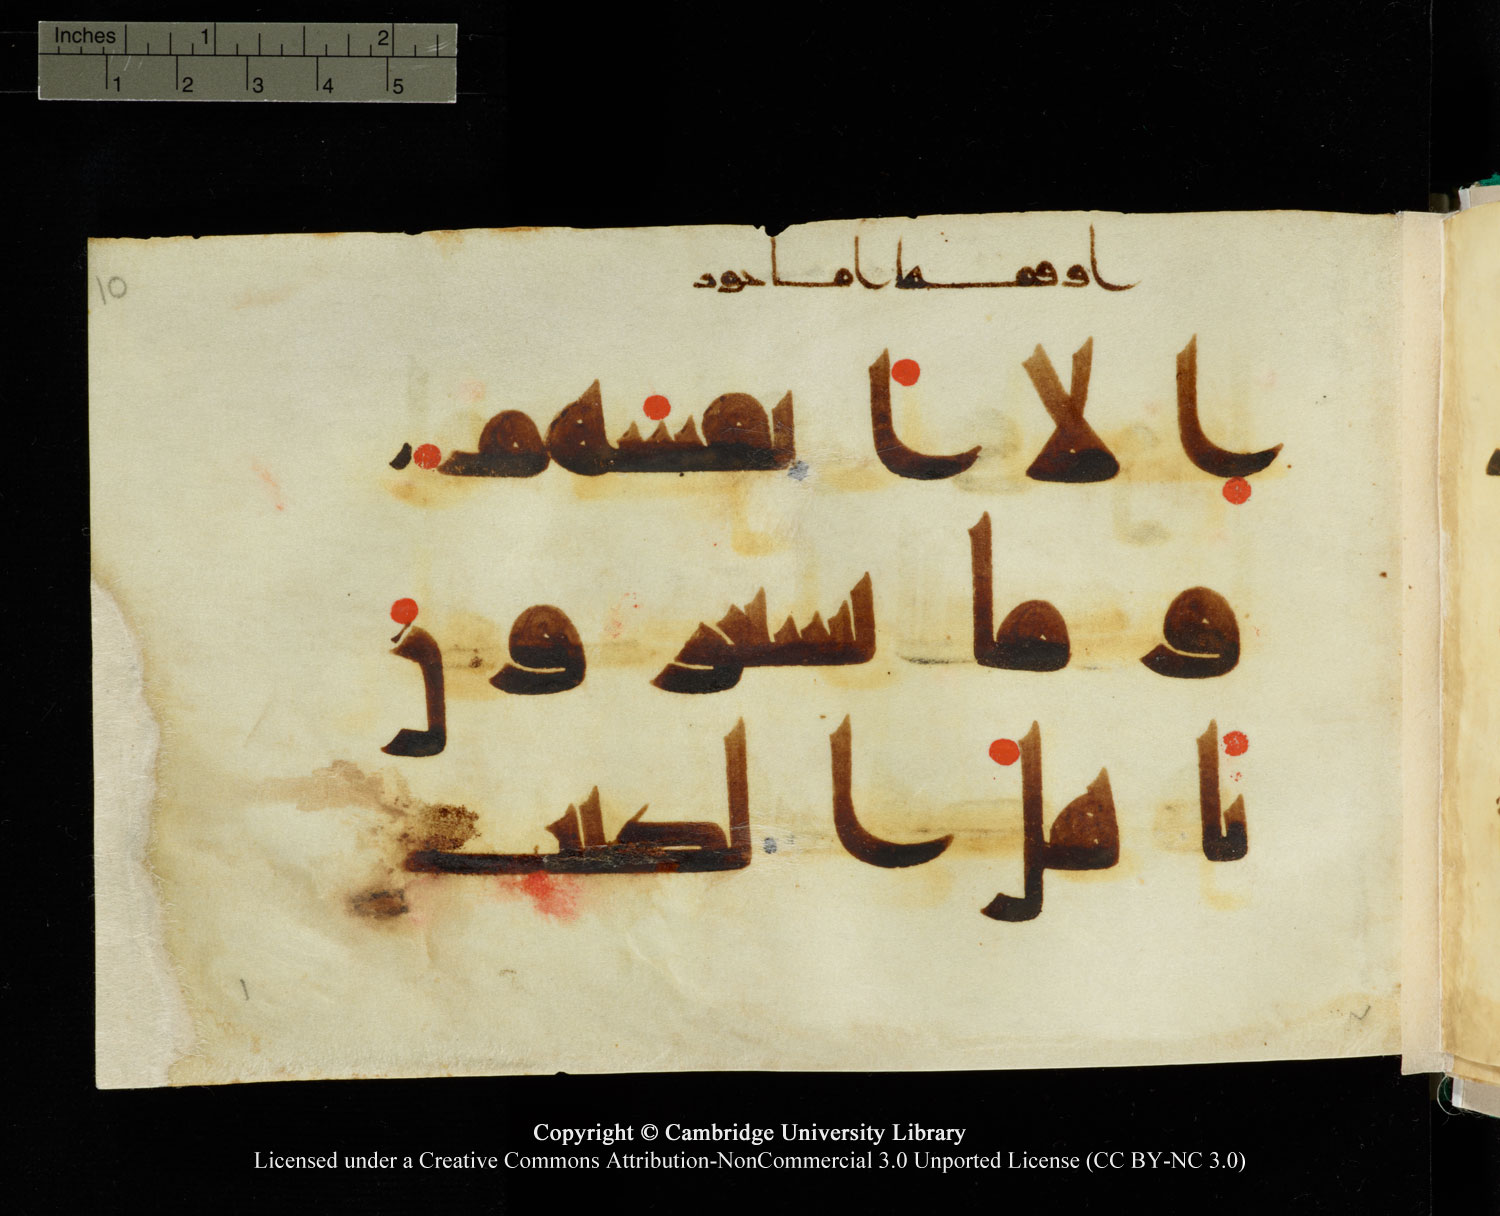 Inches 1 2
1 2 3 4 5
10
اوقفها اماجور
الا انفسهم
وما يشعرون
ياهل الكت
Copyright © Cambridge University Library
Licensed under a Creative Commons Attribution-NonCommercial 3.0 Unported License (CC BY-NC 3.0)